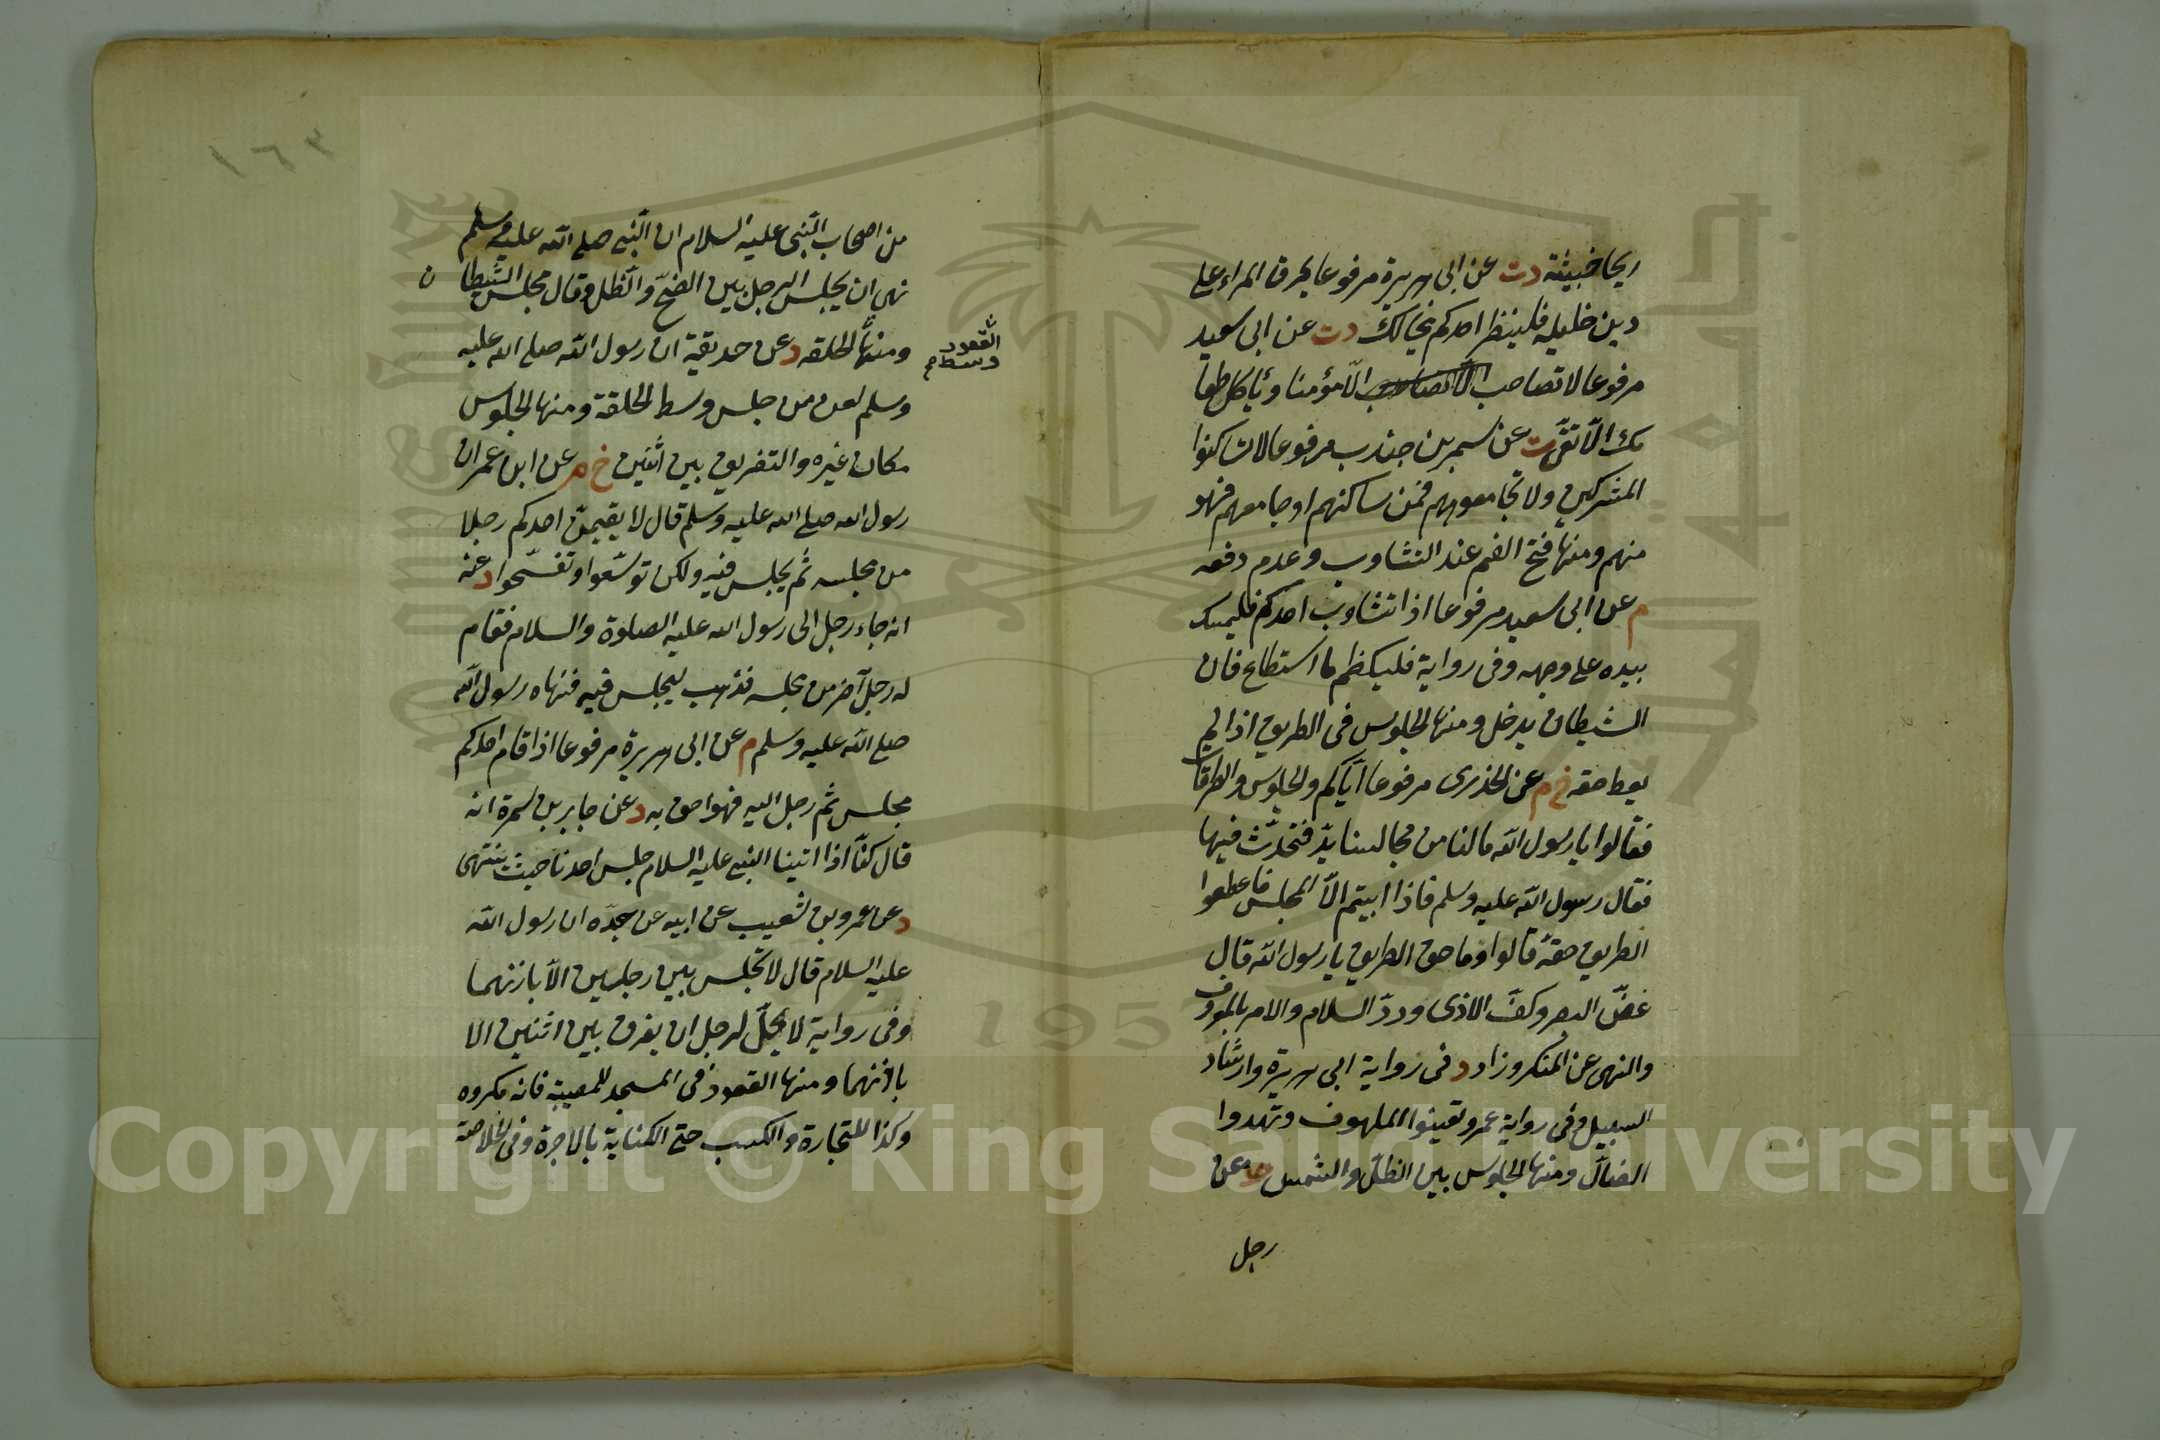 ريحا خبيثة دت عن ابى هريرة مرفوعا يحرقا المراء على
دين خليله فلينظر احدكم يخالل دت عن ابى سعيد
مرفوعا لا تصاحب الا مؤمنا ولا ياكل طعا
مك الا تقى ت عن سمر بن جندب مرفوعا لا تساكنوا
المشركين ولا تجامعوهم فمن ساكنهم او جامعهم فهو
منهم ومنها فتح الفم عند التثاوب وعدم دفعه
م عن ابى سعيد مرفوعا اذا تثاوب احدكم فليمسك
بيده على وجهه وفى رواية فليكظم ما استطاع فان
الشيطان يدخل ومنها الجلوس فى الطريق اذا لم
يعط حقه خ م عن الخذرى مرفوعا اياكم والجلوس والطرقات
فقالوا يا رسول الله مالنا من مجالسنا بد فتحدث فيها
فقال رسول الله عليه وسلم فاذا ابيتم الا المجلس فاعطوا
الطريق حقه قالوا وما حق الطريق يا رسول الله قال
غض البصر وكف الاذى وردّ السلام والامر بالمعروف
والنهى عن المنكر وزاد د فى رواية ابى هريرة وارشاد
السبيل وفى رواية عمر وتعينوا الملهوف وتهدوا
الضال ومنها الجلوس بين الظل والشمس عن
رجل
١٦٣
من اصحاب النبى عليه السلام ان النبى صلى الله عليه وسلم
نهى ان يجلس الرجل بين الضح والظل وقال مجلس الشيطان
ومنها الحلقه د عن حديقة ان رسول الله صلى الله عليه
القعود
وسط
وسلم لعن من جلس وسط الحلقة ومنها الجلوس
مكان غيره والتفريق بين اثنين خ م عن ابن عمر ان
رسول الله صلى الله عليه وسلم قال لا يقيمن احدكم رجلا
من مجلسه ثم يجلس فيه ولكن توسعوا وتفسحوا د عنه
انه جاء رجل الى رسول الله عليه الصلوة والسلام فقام
له رجل آخر من مجلسه فذهب ليجلس فيه فنهاه رسول الله
صلى الله عليه وسلم م عن ابى هريرة مرفوعا اذا قام احدكم
مجلس ثم رجل اليه فهو احق به د عن جابر بن سمرة انه
قال كنا اذا اتينا النبى عليه السلام جلس احدنا حيث ينتهى
د عن عمرو بن شعيب عن ابيه عن جده ان رسول الله
عليه السلام قال لا تجلس بين رجلين الا باذنهما
وفى رواية لا يحل لرجل ان يفرق بين اثنين الا
باذنهما ومنها القعود فى المسجد للمصيبة فانه مكروه
وكذا للتجارة والكسب حتى الكتابة بالاجرة وفى الخلاصة
Copyright © King Saud University
1957